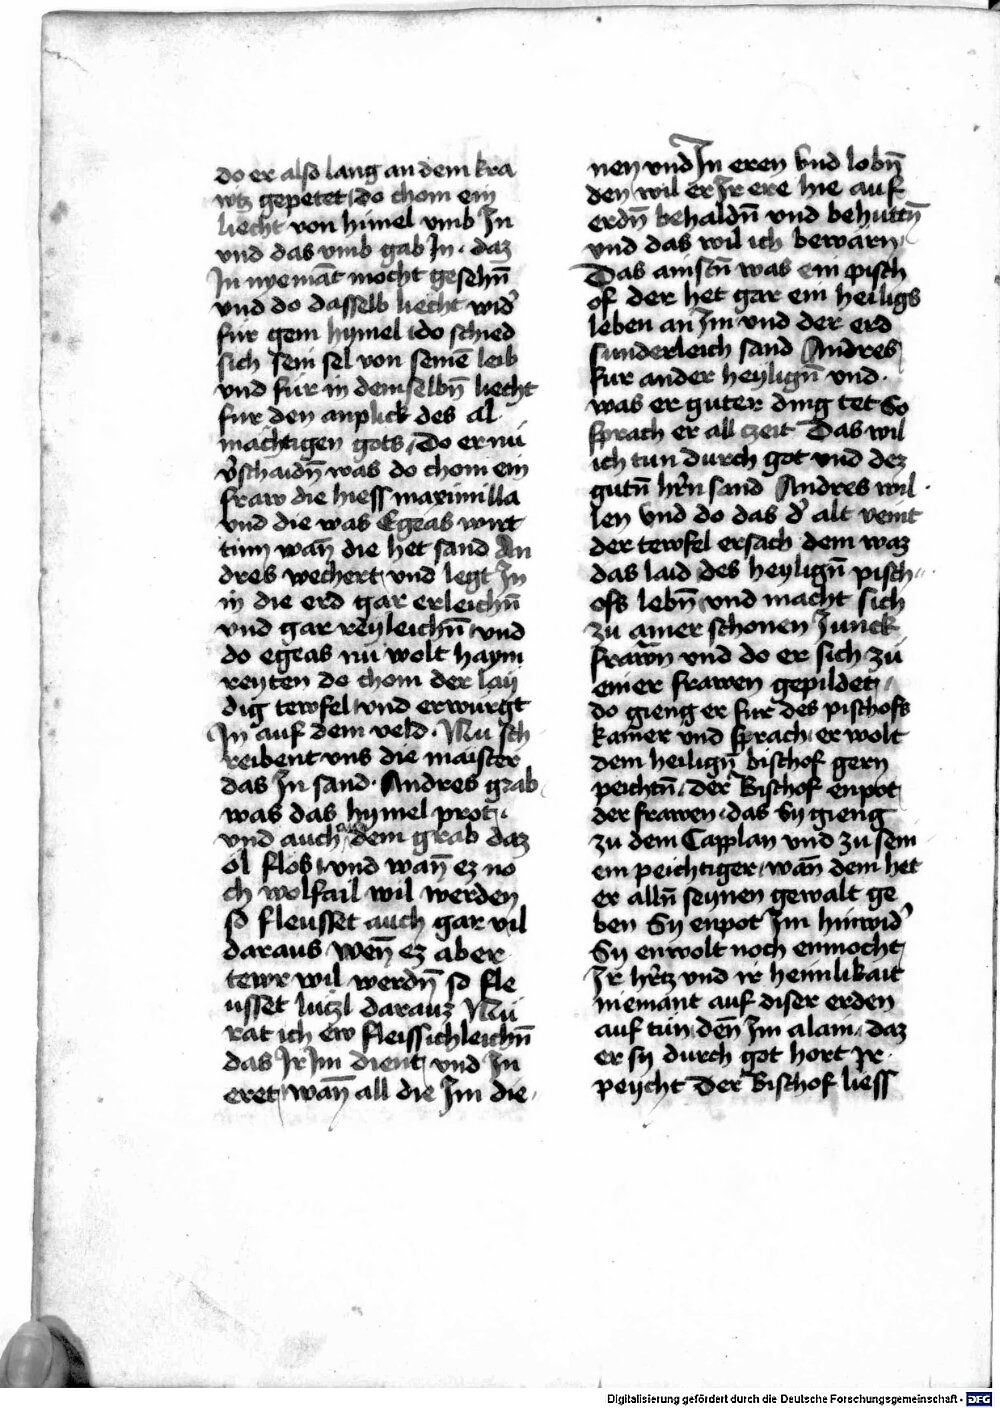 do er also lang an dem kra
wtz gepetet do chom ein
liecht von himel vmb In
vnd das vmb gab In · daz
In nyemāt mocht gesehn̄
vnd do dasselb liecht wid̄
für gem hymel do schied
sich sein sel von seinē leib
vnd für in dem selbn̄ liecht
fur den anplick des al
mächtigen gots Do er nü
v̄schaidn̄ was do chom ein
fraw die hiess maximilla
vnd die was Egeas wirt
tinn wan̄ die het sand An
dres wechert vnd legt In
in die erd gar erleichn̄
vnd gar reyleichn̄ vnd
do egeas nü wolt haym
reyten do chom der laÿ
dig tewfel vnd erwürgt
In auf dem veld · Nu sch
reibent vns die maister
das In sand · Andres grab
was das hymel prot ·
vnd auch aus dem grab daz
öl flos vnd wan̄ ez no
ch wolfail wil werden
so fleusset auch gar vil
daraus wen̄ ez aber
tewr wil werdn̄ so fle
usset lutzl daraus Nü
rat ich ew fleissichleichn̄
das Ir Im dient vnd In
eret wan̄ all die Im die
nen vnd In eren vnd lobn̄
den wil er Ir ere hie auf
erdn̄ behaldn̄ vnd behuttn̄
vnd das wil ich bewärn
Das ainstn̄ was ein pisch
of der het gar ein heiligs
leben an Im vnd der erd
sunderleich sand Andres
für ander heylign̄ vnd ·
was er guter ding tet So
sprach er all czeit Das wil
ich tun durch got vnd dez
gutn̄ hr̄n sand Andres wil
len vnd do das d̄ alt veint
der tewfel ersach dem waz
das laid des heylign̄ pisch
ofs lebn̄ vnd macht sich
zü ainer schonen Junck
frawn̄ vnd do er sich zü
einer frawen gepildet
do gieng er für des pischofs
kamer vnd sprach er wolt
dem heilign̄ bischof gern
peichtn̄ der Bischof enpot
der frawen das sy gieng
zu dem Capplan vnd zu sein
em peichtiger wan̄ dem het
er alln̄ seynen gewalt ge
ben Sy enpot Im hinwid̄
Sy enwolt noch enmocht
Ir hr̄tz vnd ir heimlikait
niemant auf diser erden
auf tün den̄ Im alain daz
er sy durch got hort Ir
peycht Der Bischof liess
Digitalisierung gefördert durch die Deutsche Forschungsgemeinschaft - DFG